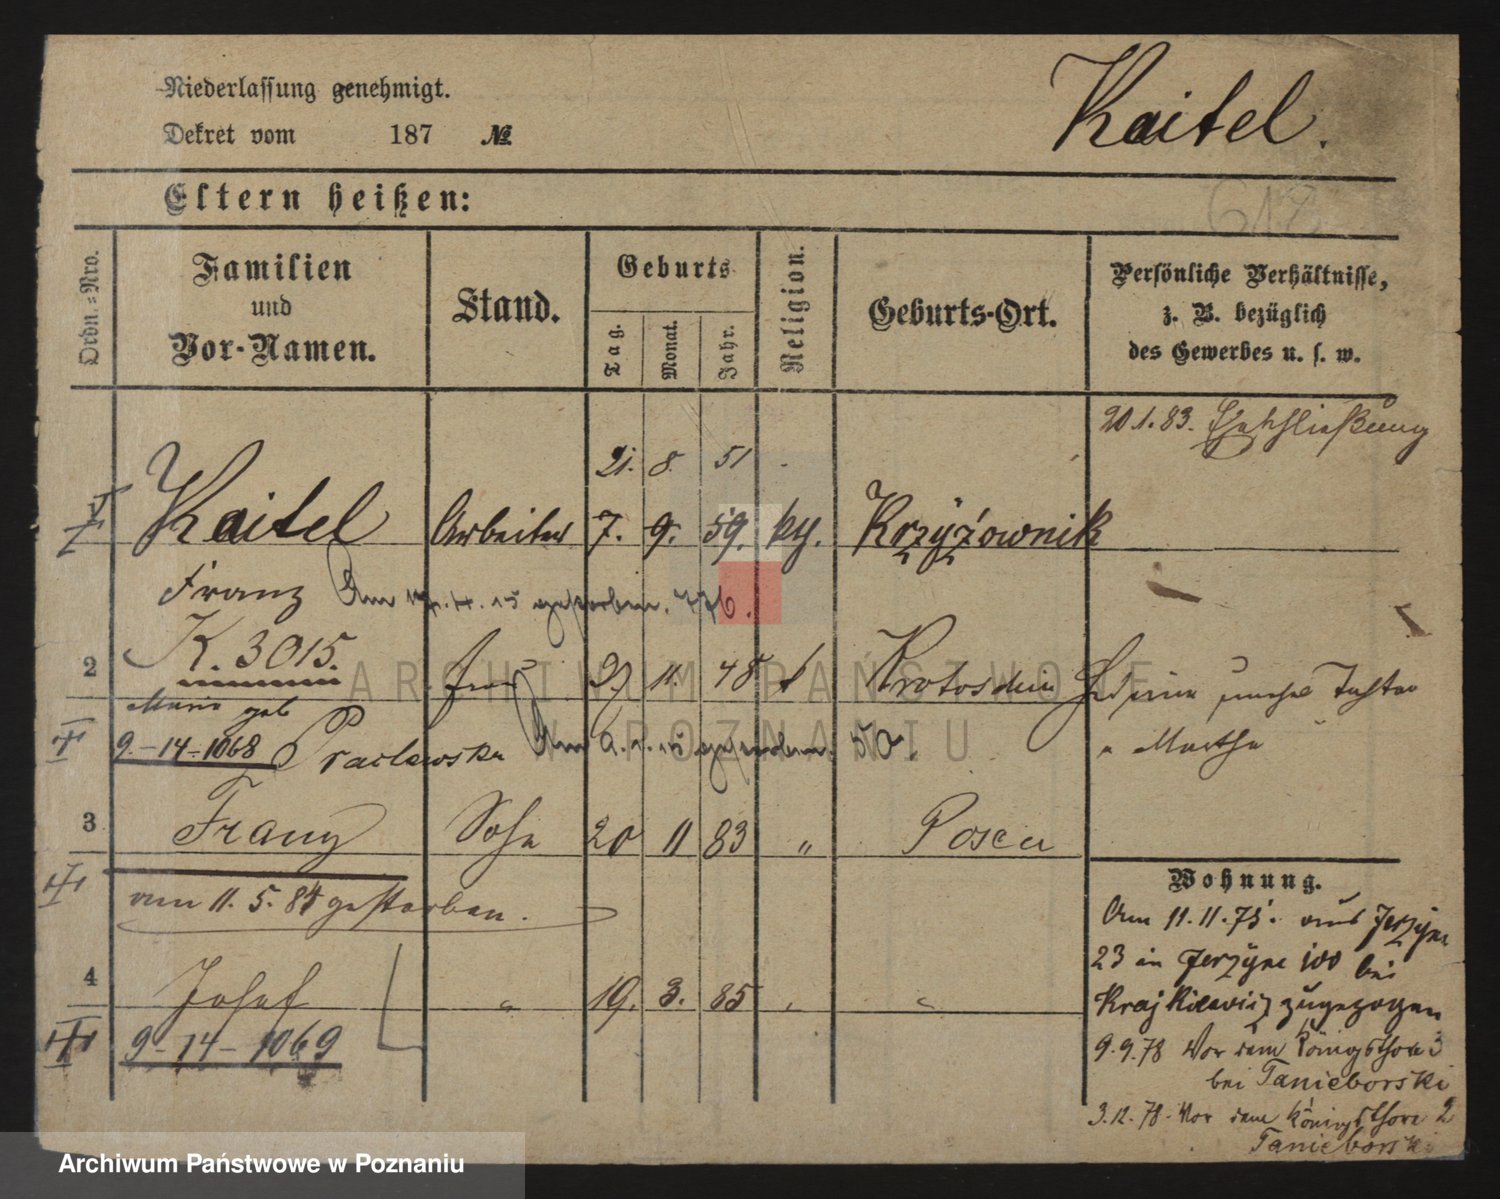 Niederlassung genehmigt.
Dekret vom 187 №
Kaitel.
Eltern heißen:
618
Ordn.=Nro.
Familien
und
Vor-Namen.
Stand.
Geburts
Tag.
Monat.
Jahr.
Religion.
Geburts-Ort.
Persönliche Verhältnisse,
z. B. bezüglich
des Gewerbes u. s. w.
20.1.83. Eheschließung
21. 8. 51
Kaitel Arbeiter 7. 9. 59. kth. Krzyżownik
Franz Am 15 gestorben.
2 K. 3015. Frau 27 11. 48 Krotoschin
Marie geb
9.-14-1068 Praclawska Am 15 gestorben. 50.
Tochter
" Martha
3 Franz Sohn 20 11 83 " Posen
am 11. 5. 84 gestorben.
4 Josef " 19. 3. 85 " "
9-14-1069
Wohnung.
Am 11.11.75. aus Jerzyce
23 in Jerzyce 100 bei
Krajkiewicz zugezogen
9.9.78 Vor dem Königsthore 3
bei Tanieborski
3.12.78. Vor dem Königsthore 2
Tanieborski
ARCHIWUM PAŃSTWOWE
W POZNANIU
Archiwum Państwowe w Poznaniu